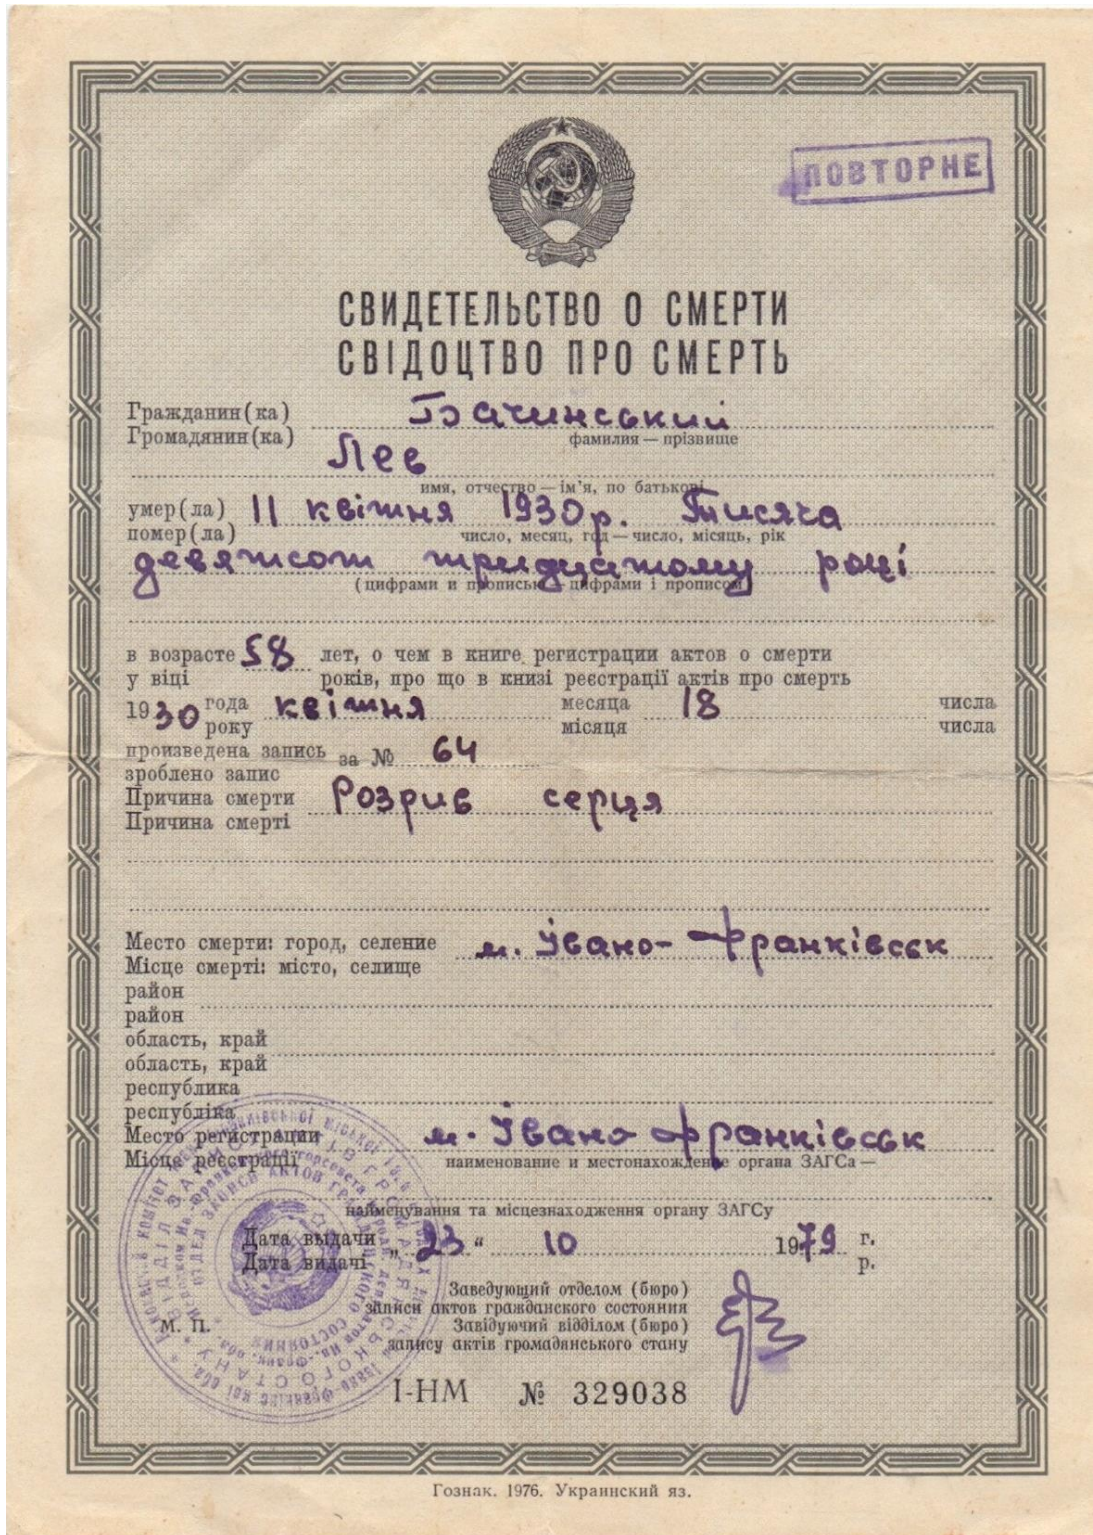 ПОВТОРНЕ
СВИДЕТЕЛЬСТВО О СМЕРТИ
СВІДОЦТВО ПРО СМЕРТЬ
Гражданин(ка) Бачинський
Громадянин(ка) фамилия — прізвище
Лев
имя, отчество — ім'я, по батькові
умер(ла) 11 квітня 1930 р. Тисяча
помер(ла) число, месяц, год — число, місяць, рік
девятсот тридцятому році
(цифрами и прописью — цифрами і прописом)
в возрасте 58 лет, о чем в книге регистрации актов о смерти
у віці років, про що в книзі реєстрації актів про смерть
1930 года квітня месяца 18 числа
року місяця числа
произведена запись за № 64
зроблено запис
Причина смерти Розрив серця
Причина смерті
Место смерти: город, селение м. Івано-Франківськ
Місце смерті: місто, селище
район
район
область, край
область, край
республика
республіка
Место регистрации м. Івано-Франківськ
Місце реєстрації наименование и местонахождение органа ЗАГСа —
найменування та місцезнаходження органу ЗАГСу
Дата выдачи „ 23 “ 10 1979 г.
Дата видачі р.
Заведующий отделом (бюро)
записи актов гражданского состояния
Завідуючий відділом (бюро)
М. П. запису актів громадянського стану
I-НМ № 329038
Гознак. 1976. Украинский яз.